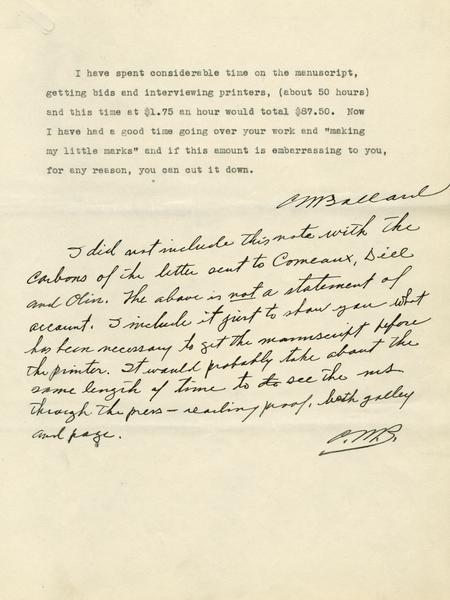 I have spent considerable time on the manuscript,
getting bids and interviewing printers, (about 50 hours)
and this time at $1.75 an hour would total $87.50. Now
I have had a good time going over your work and "making
my little marks" and if this amount is embarrassing to you,
for any reason, you can cut it down.
CMBallard
I did not include this note with the
carbons of the letter sent to Comeaux, Diel
and Olin. The above is not a statement of
account. I include it just to show you what
has been necessary to get the manuscript before
the printer. It would probably take about the
same length of time to do see the ms
through the press — reading proof, both galley
and page.
C.M.B.